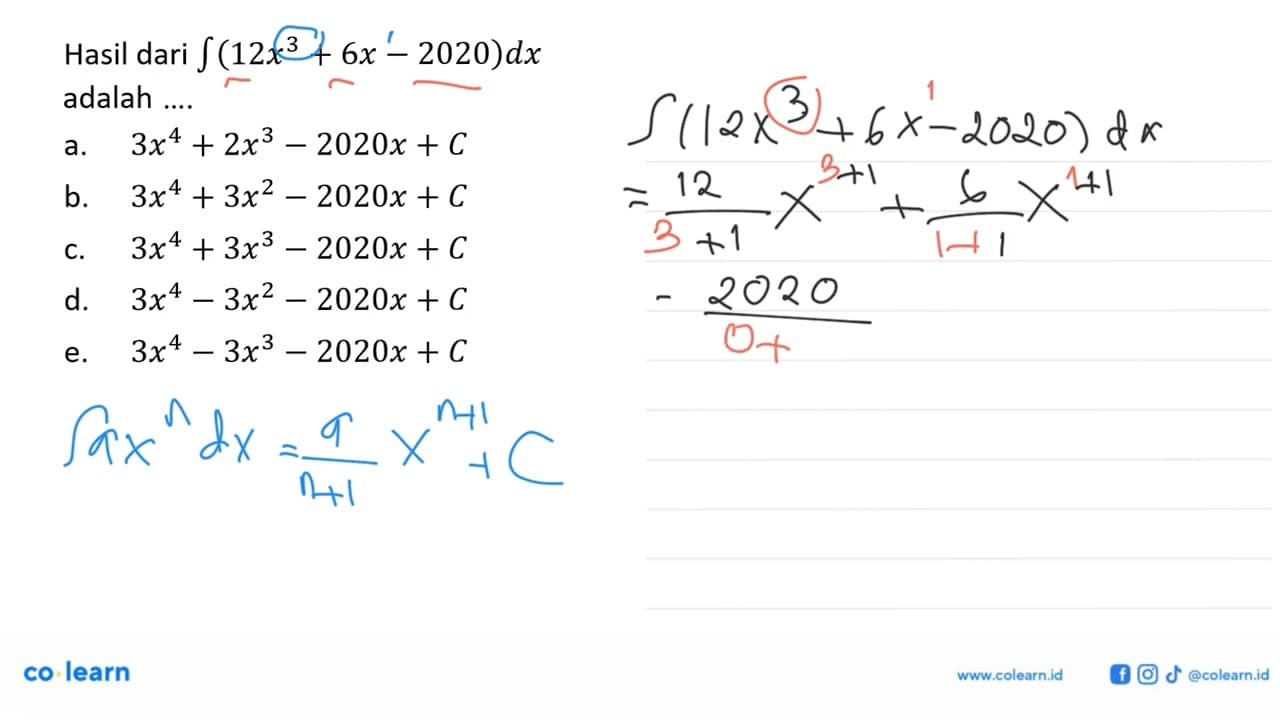 Hasil dari ∫(12x³ + 6x¹ − 2020)dx
adalah ....
a. 3x⁴ + 2x³ − 2020x + C
b. 3x⁴ + 3x² − 2020x + C
c. 3x⁴ + 3x³ − 2020x + C
d. 3x⁴ − 3x² − 2020x + C
e. 3x⁴ − 3x³ − 2020x + C
∫axⁿ dx = a/(n+1) xⁿ⁺¹ + C
∫(12x³ + 6x¹ − 2020) dx
= 12/(3+1) x³⁺¹ + 6/(1+1) x¹⁺¹
− 2020/(0+
co learn
www.colearn.id
@colearn.id